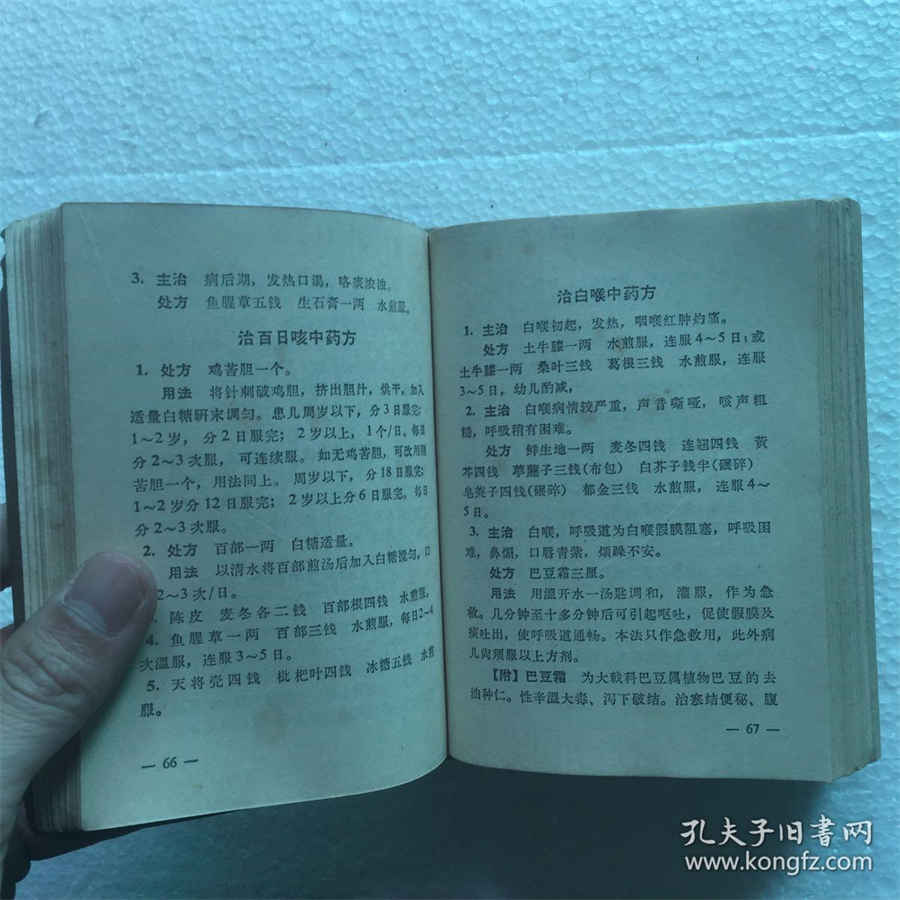 3. 主治 病后期，发热口渴，咯痰浓浊。
处方 鱼腥草五钱 生石膏一两 水煎服。
治百日咳中药方
1. 处方 鸡苦胆一个。
用法 将针刺破鸡胆，挤出胆汁，烘干，加入
适量白糖研末调匀。患儿周岁以下，分3日服完；
1～2岁，分2日服完；2岁以上，1个/日、每日
分2～3次服，可连续服。如无鸡苦胆，可改用
苦胆一个，用法同上。周岁以下，分18日服完；
1～2岁分12日服完；2岁以上分6日服完，每日
分2～3次服。
2. 处方 百部一两 白糖适量。
用法 以清水将百部煎汤后加入白糖搅匀，口
2～3次/日。
陈皮 麦冬各二钱 百部根四钱 水煎服。
4. 鱼腥草一两 百部三钱 水煎服，每日2～4
次温服，连服3～5日。
5. 天将壳四钱 枇杷叶四钱 冰糖五钱 水煎
服。
— 66 —
治白喉中药方
1. 主治 白喉初起，发热，咽喉红肿灼痛。
处方 土牛膝一两 水煎服，连服4～5日；或
土牛膝一两 桑叶三钱 葛根三钱 水煎服，连服
3～5日，幼儿酌减，
2. 主治 白喉病情较严重，声音嘶哑，咳声粗
糙，呼吸稍有困难。
处方 鲜生地一两 麦冬四钱 连翘四钱 黄
芩四钱 葶藶子三钱(布包) 白芥子钱半(碾碎)
皂荚子四钱(碾碎) 郁金三钱 水煎服，连服4～
5日。
3. 主治 白喉，呼吸道为白喉假膜阻塞，呼吸困
难，鼻煽，口唇青紫，烦躁不安。
处方 巴豆霜三厘。
用法 用温开水一汤匙调和，灌服，作为急
救。几分钟至十多分钟后可引起呕吐，促使假膜及
痰吐出，使呼吸道通畅。本法只作急救用，此外病
儿尚须服以上方剂。
【附】巴豆霜 为大戟科巴豆属植物巴豆的去
油种仁。性辛温大毒、泻下破结。治寒结便秘、腹
— 67 —
孔夫子旧书网
www.kongfz.com